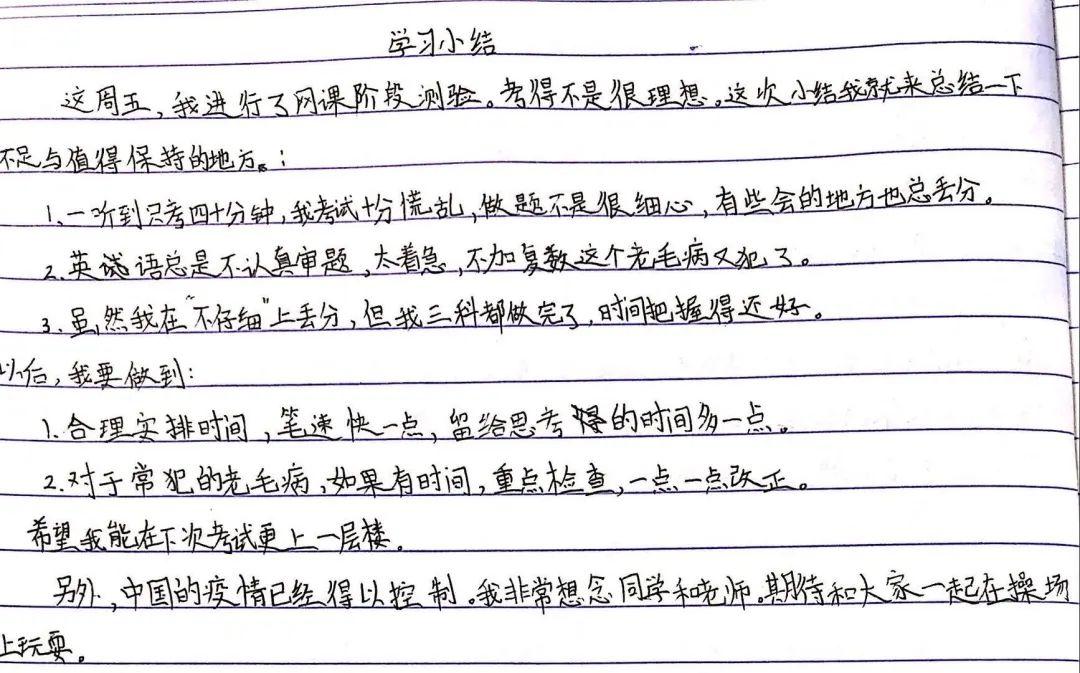 学习小结
这周五,我进行了网课阶段测验。考得不是很理想。这次小结我就来总结一下
不足与值得保持的地方。:
1.一听到只考四十分钟,我考试十分慌乱,做题不是很细心,有些会的地方也总丢分。
2.英语总是不认真审题,太着急,不加复数这个老毛病又犯了。
3.虽然我在“不仔细”上丢分,但我三科都做完了,时间把握得还好。
以后,我要做到:
1.合理安排时间,笔速快一点,留给思考的时间多一点。
2.对于常犯的老毛病,如果有时间,重点检查,一点一点改正。
希望我能在下次考试更上一层楼。
另外,中国的疫情已经得以控制。我非常想念同学和老师。期待和大家一起在操场
上玩耍。